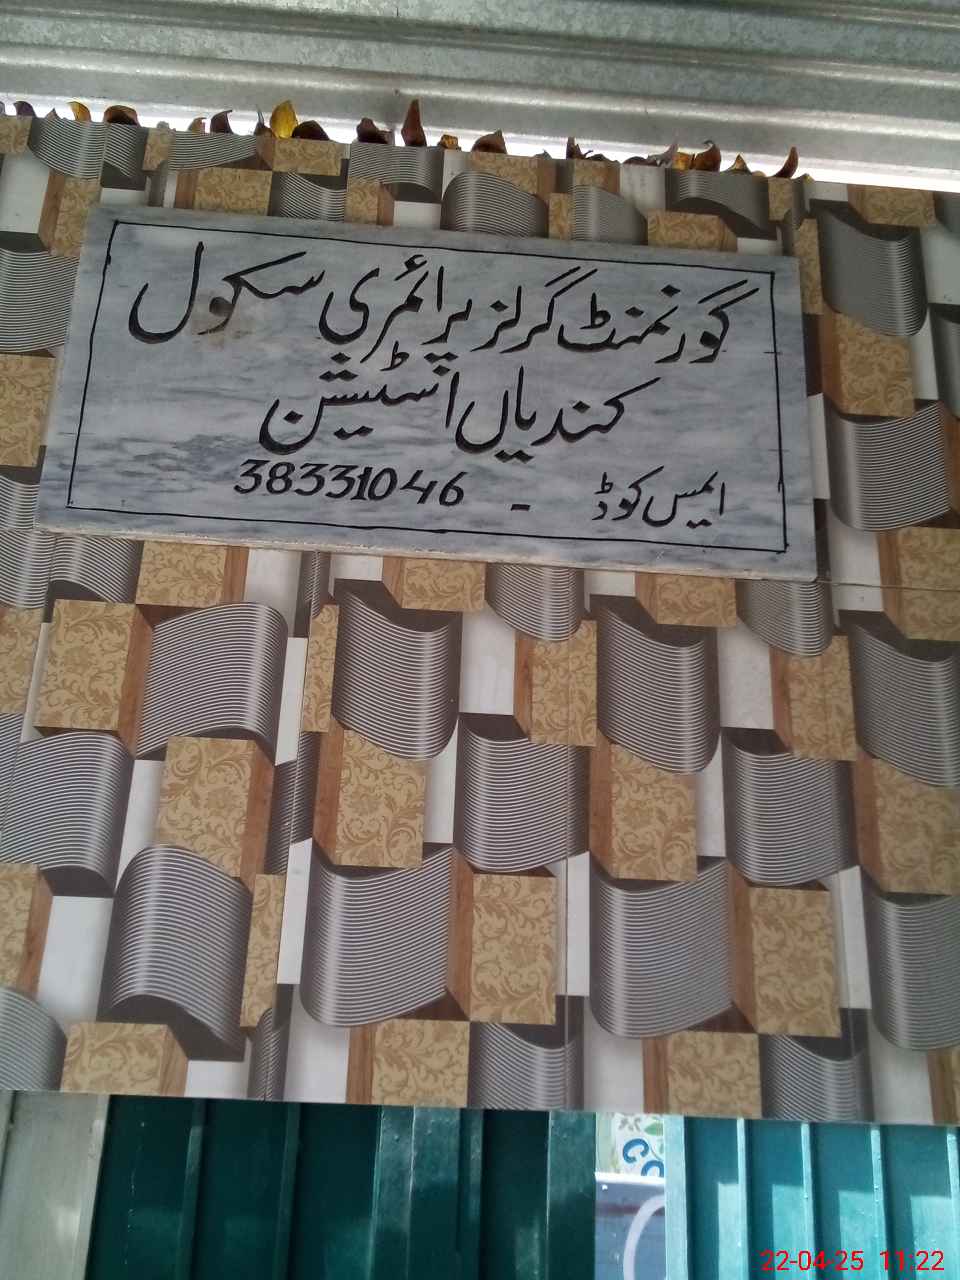 گورنمنٹ گرلز پرائمری سکول
کندیاں اسٹیشن
ایمس کوڈ - 38331046
22-04-25 11:22